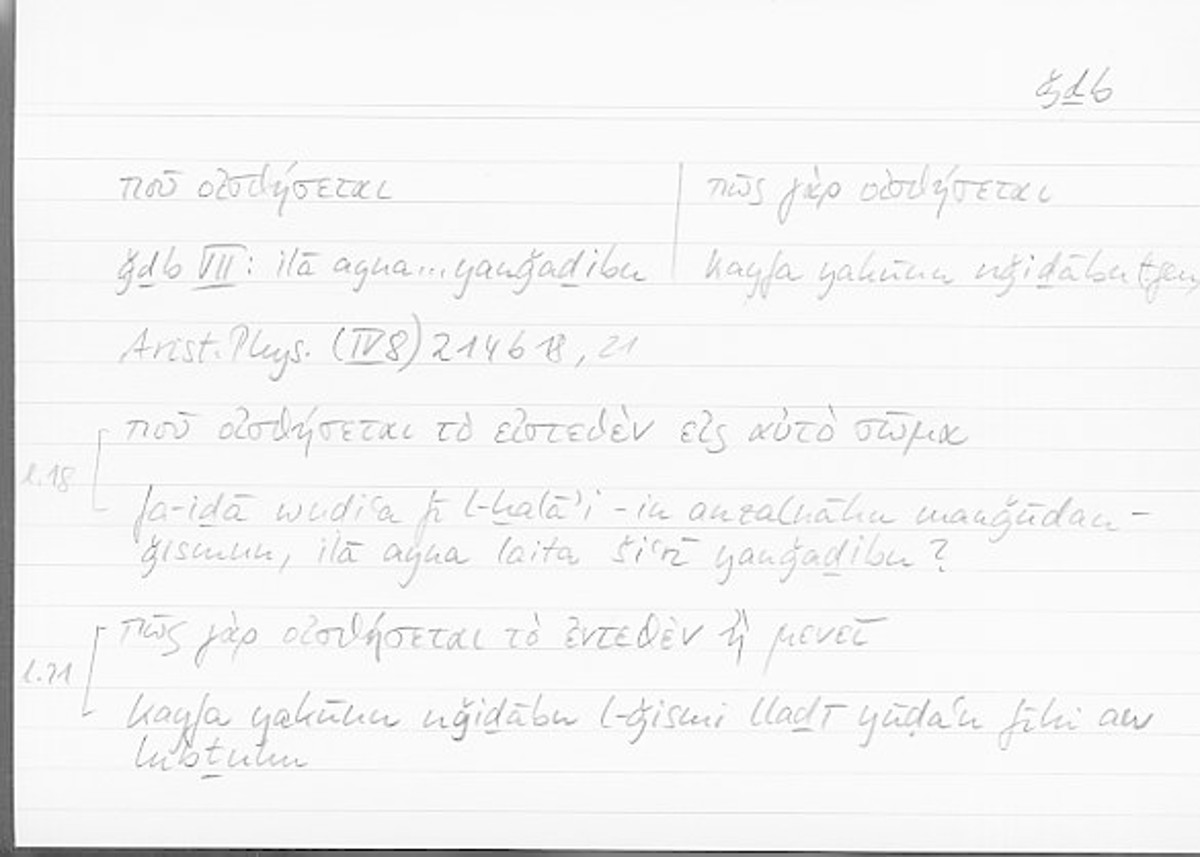 ǧḏb
ποῦ οἰσθήσεται | πῶς γὰρ οἰσθήσεται
ǧḏb VII: ilā ayna...yanǧaḏibu | kayfa yakūnu nǧiḏābu
Arist. Phys. (IV 8) 214 b 18, 21
l.18 ποῦ οἰσθήσεται τὸ εἰστεθὲν εἰς αὐτὸ σῶμα
fa-iḏā wuḍiʿa fī l-ḫalāʾi -in anzalnāhu mawǧūdan -
ǧismun, ilā ayna laita šiʿrī yanǧaḏibu?
l.21 πῶς γὰρ οἰσθήσεται τὸ ἐντεθὲν ἢ μενεῖ
kayfa yakūnu nǧiḏābu l-ǧismi llaḏī yūḍaʿu fīhi aw
lubṯuhu